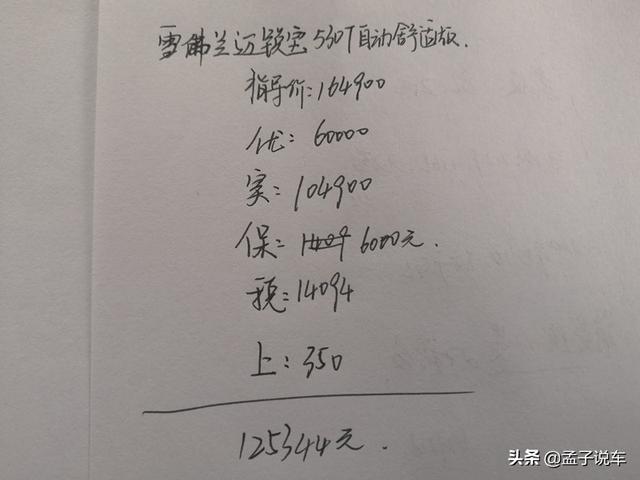 雪佛兰迈锐宝530T自动舒适版.
指导价:164900
优:60000
实:104900
保:6000元.
税:14094
上:350
125344元.
头条 @孟子说车